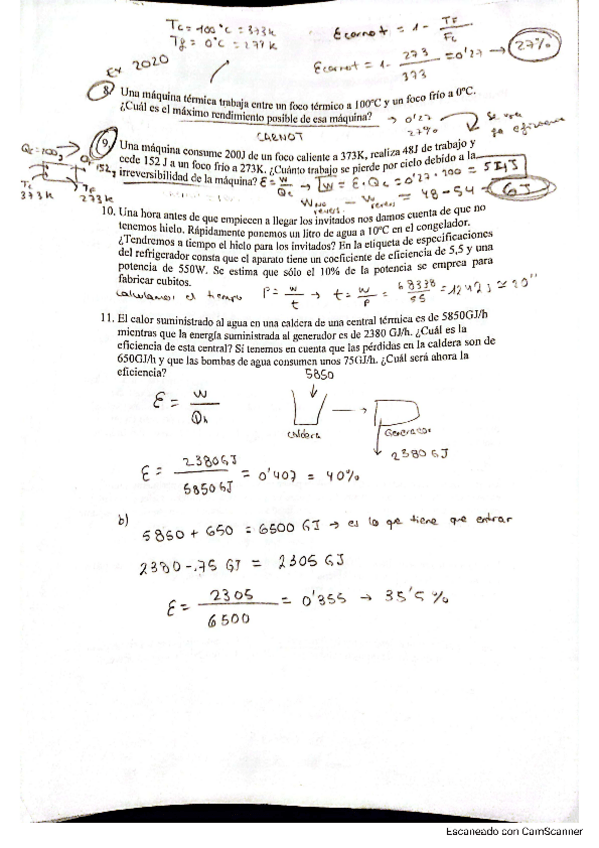 Tc = 100°C = 373K
Tf = 0°C = 277K
Ecarnot = 1 - TF/Fc
Ecarnot = 1 - 273/373 = 0'27 → 27%
Ex 2020
8. Una máquina térmica trabaja entre un foco térmico a 100ºC y un foco frío a 0ºC.
¿Cuál es el máximo rendimiento posible de esa máquina? → 0'27
27%
CARNOT
9. Una máquina consume 200J de un foco caliente a 373K, realiza 48J de trabajo y
cede 152 J a un foco frío a 273K. ¿Cuánto trabajo se pierde por ciclo debido a la
irreversibilidad de la máquina? E = W/Qc → W = E · Qc = 0'27 · 100 =
48 - 54 = 6J
Tc
373K
TF
273K
10. Una hora antes de que empiecen a llegar los invitados nos damos cuenta de que no
tenemos hielo. Rápidamente ponemos un litro de agua a 10ºC en el congelador.
¿Tendremos a tiempo el hielo para los invitados? En la etiqueta de especificaciones
del refrigerador consta que el aparato tiene un coeficiente de eficiencia de 5,5 y una
potencia de 550W. Se estima que sólo el 10% de la potencia se emprea para
fabricar cubitos.
calculamos el tiempo P = W/t → t = W/P = 68338/55 = 1242 s ≈ 20''
11. El calor suministrado al agua en una caldera de una central térmica es de 5850GJ/h
mientras que la energía suministrada al generador es de 2380 GJ/h. ¿Cuál es la
eficiencia de esta central? Si tenemos en cuenta que las pérdidas en la caldera son de
650GJ/h y que las bombas de agua consumen unos 75GJ/h. ¿Cuál será ahora la
eficiencia?
5850
E = W/Qh
caldera
Generador
2380 GJ
E = 2380GJ/5850GJ = 0'407 = 40%
b)
5850 + 650 = 6500 GJ → es lo qe tiene que entrar
2380 - 75 GJ = 2305 GJ
E = 2305/6500 = 0'355 → 35'5 %
Escaneado con CamScanner